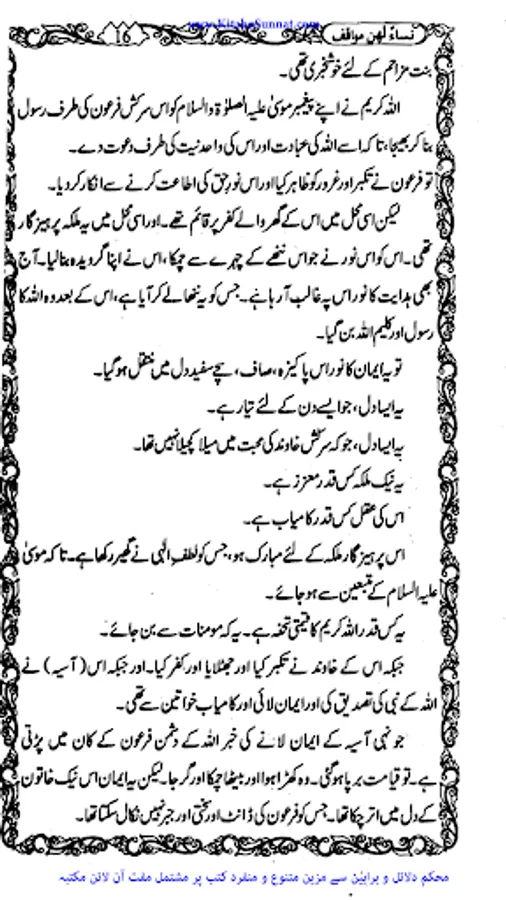 www.KitaboSunnat.com
نساءٌ لهن مواقف
16
بنت مزاحم کے لئے خوشخبری تھی۔
اللہ کریم نے اپنے پیغمبر موسیٰ علیہ الصلوٰۃ والسلام کو اس سرکش فرعون کی طرف رسول
بنا کر بھیجا، تاکہ اسے اللہ کی عبادت اور اس کی واحدنیت کی طرف دعوت دے۔
تو فرعون نے تکبر اور غرور کو ظاہر کیا اور اس نورِ حق کی اطاعت کرنے سے انکار کردیا۔
لیکن اسی محل میں اس کے گھر والے کفر پر قائم تھے۔ اور اسی محل میں یہ ملکہ پرہیز گار
تھی۔ اس کو اس نور نے جو اس ننھے کے چہرے سے چمکا، اس نے اپنا گرویدہ بنالیا۔ آج
بھی ہدایت کا نور اس پہ غالب آرہا ہے۔ جس کو یہ ننھا لے کر آیا ہے، اس کے بعد وہ اللہ کا
رسول اور کلیم اللہ بن گیا۔
تو یہ ایمان کا نور اس پاکیزہ، صاف، سچے سفید دل میں منتقل ہوگیا۔
یہ ایسا دل، جو ایسے دن کے لئے تیار ہے۔
یہ ایسا دل، جو کہ سرکش خاوند کی محبت میں میلا کچیلا نہیں تھا۔
یہ نیک ملکہ کس قدر معزز ہے۔
اس کی عقل کس قدر کامیاب ہے۔
اس پرہیز گار ملکہ کے لئے مبارک ہو، جس کو لطفِ الٰہی نے گھیر رکھا ہے۔ تاکہ موسیٰ
علیہ السلام کے متبعین سے ہو جائے۔
یہ کس قدر اللہ کریم کا قیمتی تحفہ ہے۔ یہ کہ مومنات سے بن جائے۔
جبکہ اس کے خاوند نے تکبر کیا اور جھٹلایا اور کفر کیا۔ اور جبکہ اس (آسیہ) نے
اللہ کے نبی کی تصدیق کی اور ایمان لائی اور کامیاب خواتین سے تھی۔
جونہی آسیہ کے ایمان لانے کی خبر اللہ کے دشمن فرعون کے کان میں پڑتی
ہے۔ تو قیامت برپا ہوگئی۔ وہ کھڑا ہوا اور بیٹھا چمکا اور گرجا۔ لیکن یہ ایمان اس نیک خاتون
کے دل میں اتر چکا تھا۔ جس کو فرعون کی ڈانٹ اور سختی اور جبر نہیں نکال سکتا تھا۔
محکم دلائل و براہین سے مزین متنوع و منفرد کتب پر مشتمل مفت آن لائن مکتبہ